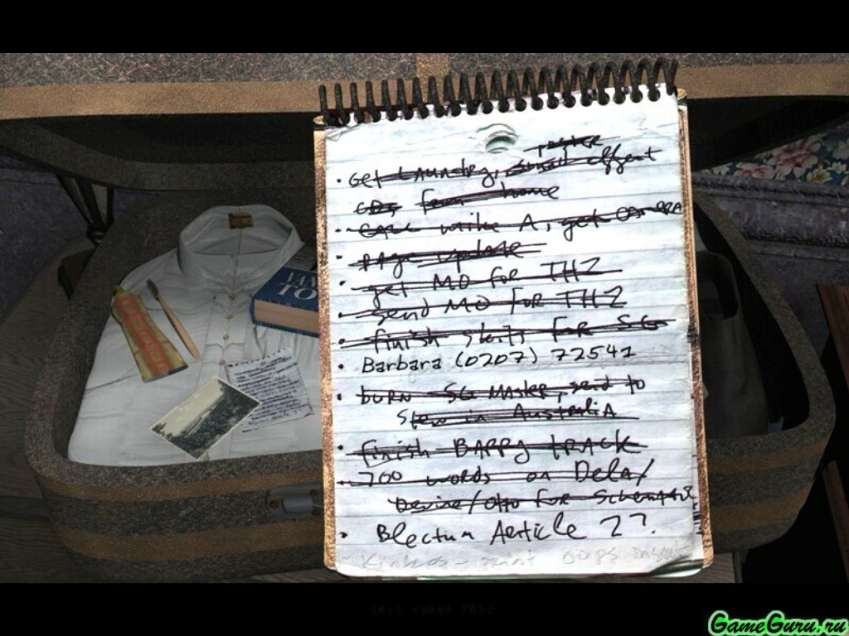 paper
• Get Laundry, small effect
CDs from home
• call mike A, get camera
• page update
• get MO for THZ
• send MO for THZ
• finish skits for SG
• Barbara (0207) 72541
• burn SG Master, send to
Stew in Australia
• finish BARRY track
700 words on Dela/
/Otto for Schematic
• Blectum Article 2?.
TO
text speed FAST
GameGuru.ru